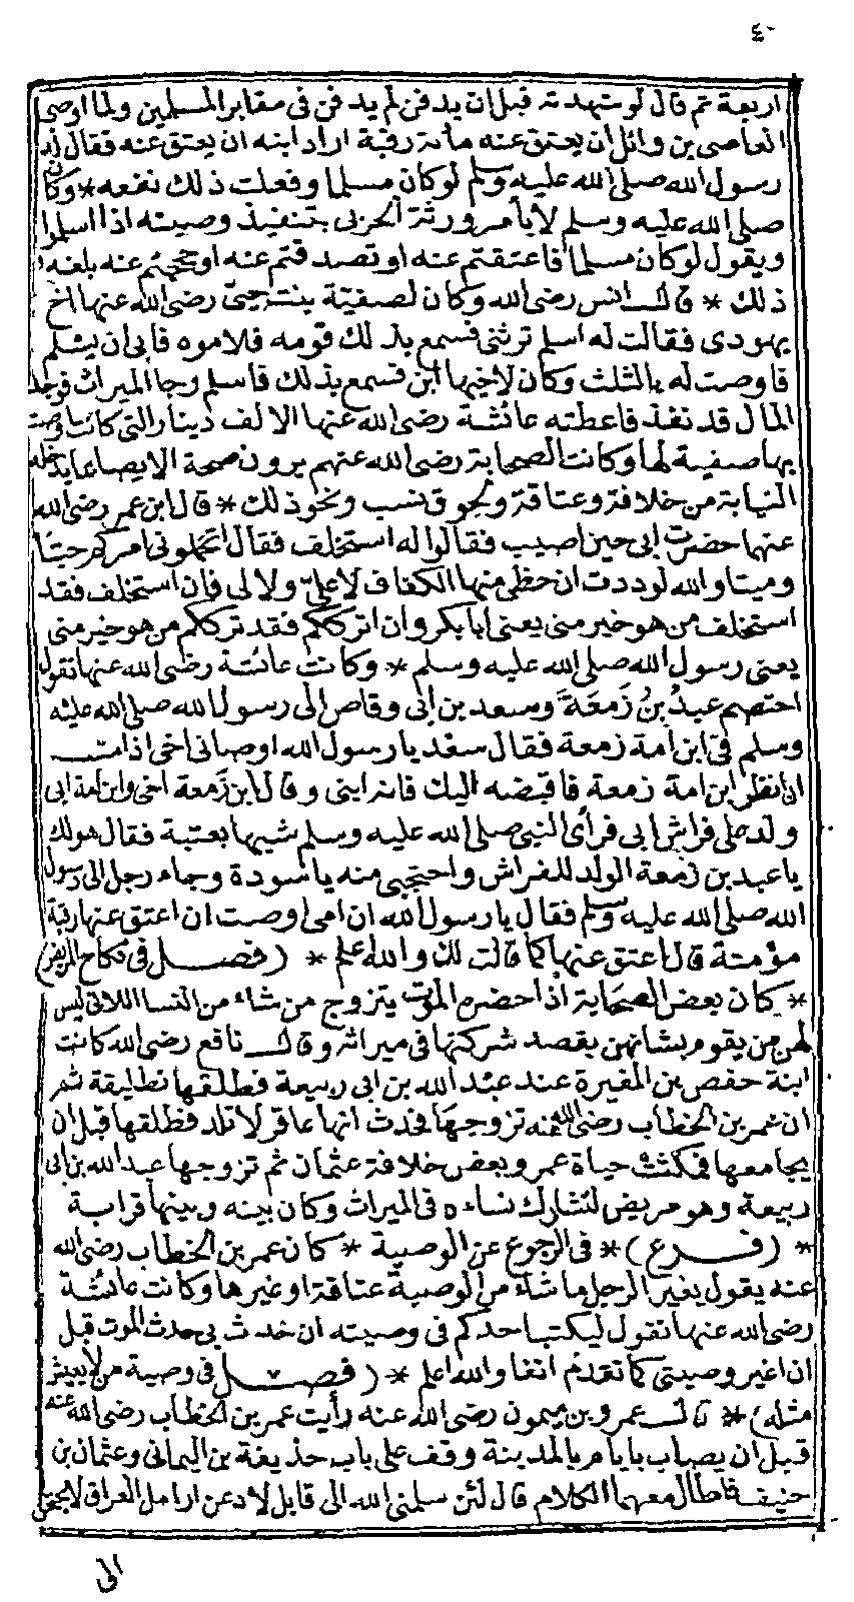 ٤٠
اربعة ثم قال لو شهدته قبل ان يدفن لم يدفن في مقابر المسلمين ولما اوصى
العاصى بن وائل ان يعتق عنه مائة رقبة اراد ابنه ان يعتق عنه فقال له
رسول الله صلى الله عليه وسلم لو كان مسلما وفعلت ذلك نفعه * وكان
صلى الله عليه وسلم لا يأمر ورثة الحربى بتنفيذ وصيته اذا اسلموا
ويقول لو كان مسلما فاعتقتم عنه او تصدقتم عنه او حججتم عنه بلغه
ذلك * قال انس رضى الله وكان لصفية بنت حيى رضى الله عنها اخ
يهودى فقالت له اسلم ترثنى فسمع بذلك قومه فلاموه فابى ان يسلم
فاوصت له بالثلث وكان لاخيها ابن فسمع بذلك فاسلم وجا الميراث فوجد
المال قد نفذ فاعطته عائشة رضى الله عنها الالف دينار التى كانت اوصت
بها صفية لها وكانت الصحابة رضى الله عنهم يرون صحة الايصا بما يدخله
النيابة من خلافة وعتاقة ولحوق نسب ونحو ذلك * قال ابن عمر رضى الله
عنهما حضرت ابى حين اصيب فقالوا له استخلف فقال اتحملونى امركم حيتا
وميتا والله لوددت ان حظى منها الكفاف لا على ولا لى فان استخلف فقد
استخلف من هو خير منى يعنى ابا بكر وان اترككم فقد ترككم من هو خير منى
يعنى رسول الله صلى الله عليه وسلم * وكانت عائشة رضى الله عنها تقول
اختصم عبدُ بنُ زَمعَةَ وسعد بن ابى وقاص الى رسول الله صلى الله عليه
وسلم فى ابن امة زمعة فقال سعد يا رسول الله اوصانى اخى اذا مت
ان انظر ابن امة زمعة فاقبضه اليك فانه ابنى وقال ابن زَمعة اخى وابن امة ابى
ولد على فراش ابى فرأى النبى صلى الله عليه وسلم شبها بعتبة فقال هو لك
يا عبد بن زمعة الولد للفراش واحتجبى منه يا سودة وجاء رجل الى رسول
الله صلى الله عليه وسلم فقال يا رسول الله ان امى اوصت ان اعتق عنها رقبة
مؤمنة قال اعتق عنها كما قالت لك والله اعلم * (فصل فى نكاح المريض)
* كان بعض الصحابة اذا حضره الموت يتزوج من شاء من النسا اللاتى ليس
لهن من يقوم بشانهن بقصد شركتها فى ميراثه وقال نافع رضى الله كانت
ابنة حفص بن المغيرة عند عبد الله بن ابى ربيعة فطلقها تطليقة ثم
ان عمر بن الخطاب رضى الله عنه تزوجها فحدث انها عاقر لا تلد فطلقها قبل ان
يجامعها فمكثت حياة عمر وبعض خلافة عثمان ثم تزوجها عبد الله بن ابى
ربيعة وهو مريض لتشارك نساءه فى الميراث وكان بينه وبينها قرابة
* (فرع) * فى الرجوع عن الوصية * كان عمر بن الخطاب رضى الله
عنه يقول يغير الرجل ما شاء من الوصية عتاقة او غيرها وكانت عائشة
رضى الله عنها تقول ليكتب احدكم فى وصيته ان حدث بى حدث الموت قبل
ان اغير وصيتى كما تقدم انفا والله اعلم * (فصل فى وصية من لا يعيش
مثله) * قال عمرو بن ميمون رضى الله عنه رأيت عمر بن الخطاب رضى الله عنه
قبل ان يصاب بايام بالمدينة وقف على باب حذيفة بن اليمانى وعثمان بن
حنيف فاطال معهما الكلام قال لئن سلمنى الله الى قابل لادعن ارامل العراق لا يحتجن
الى